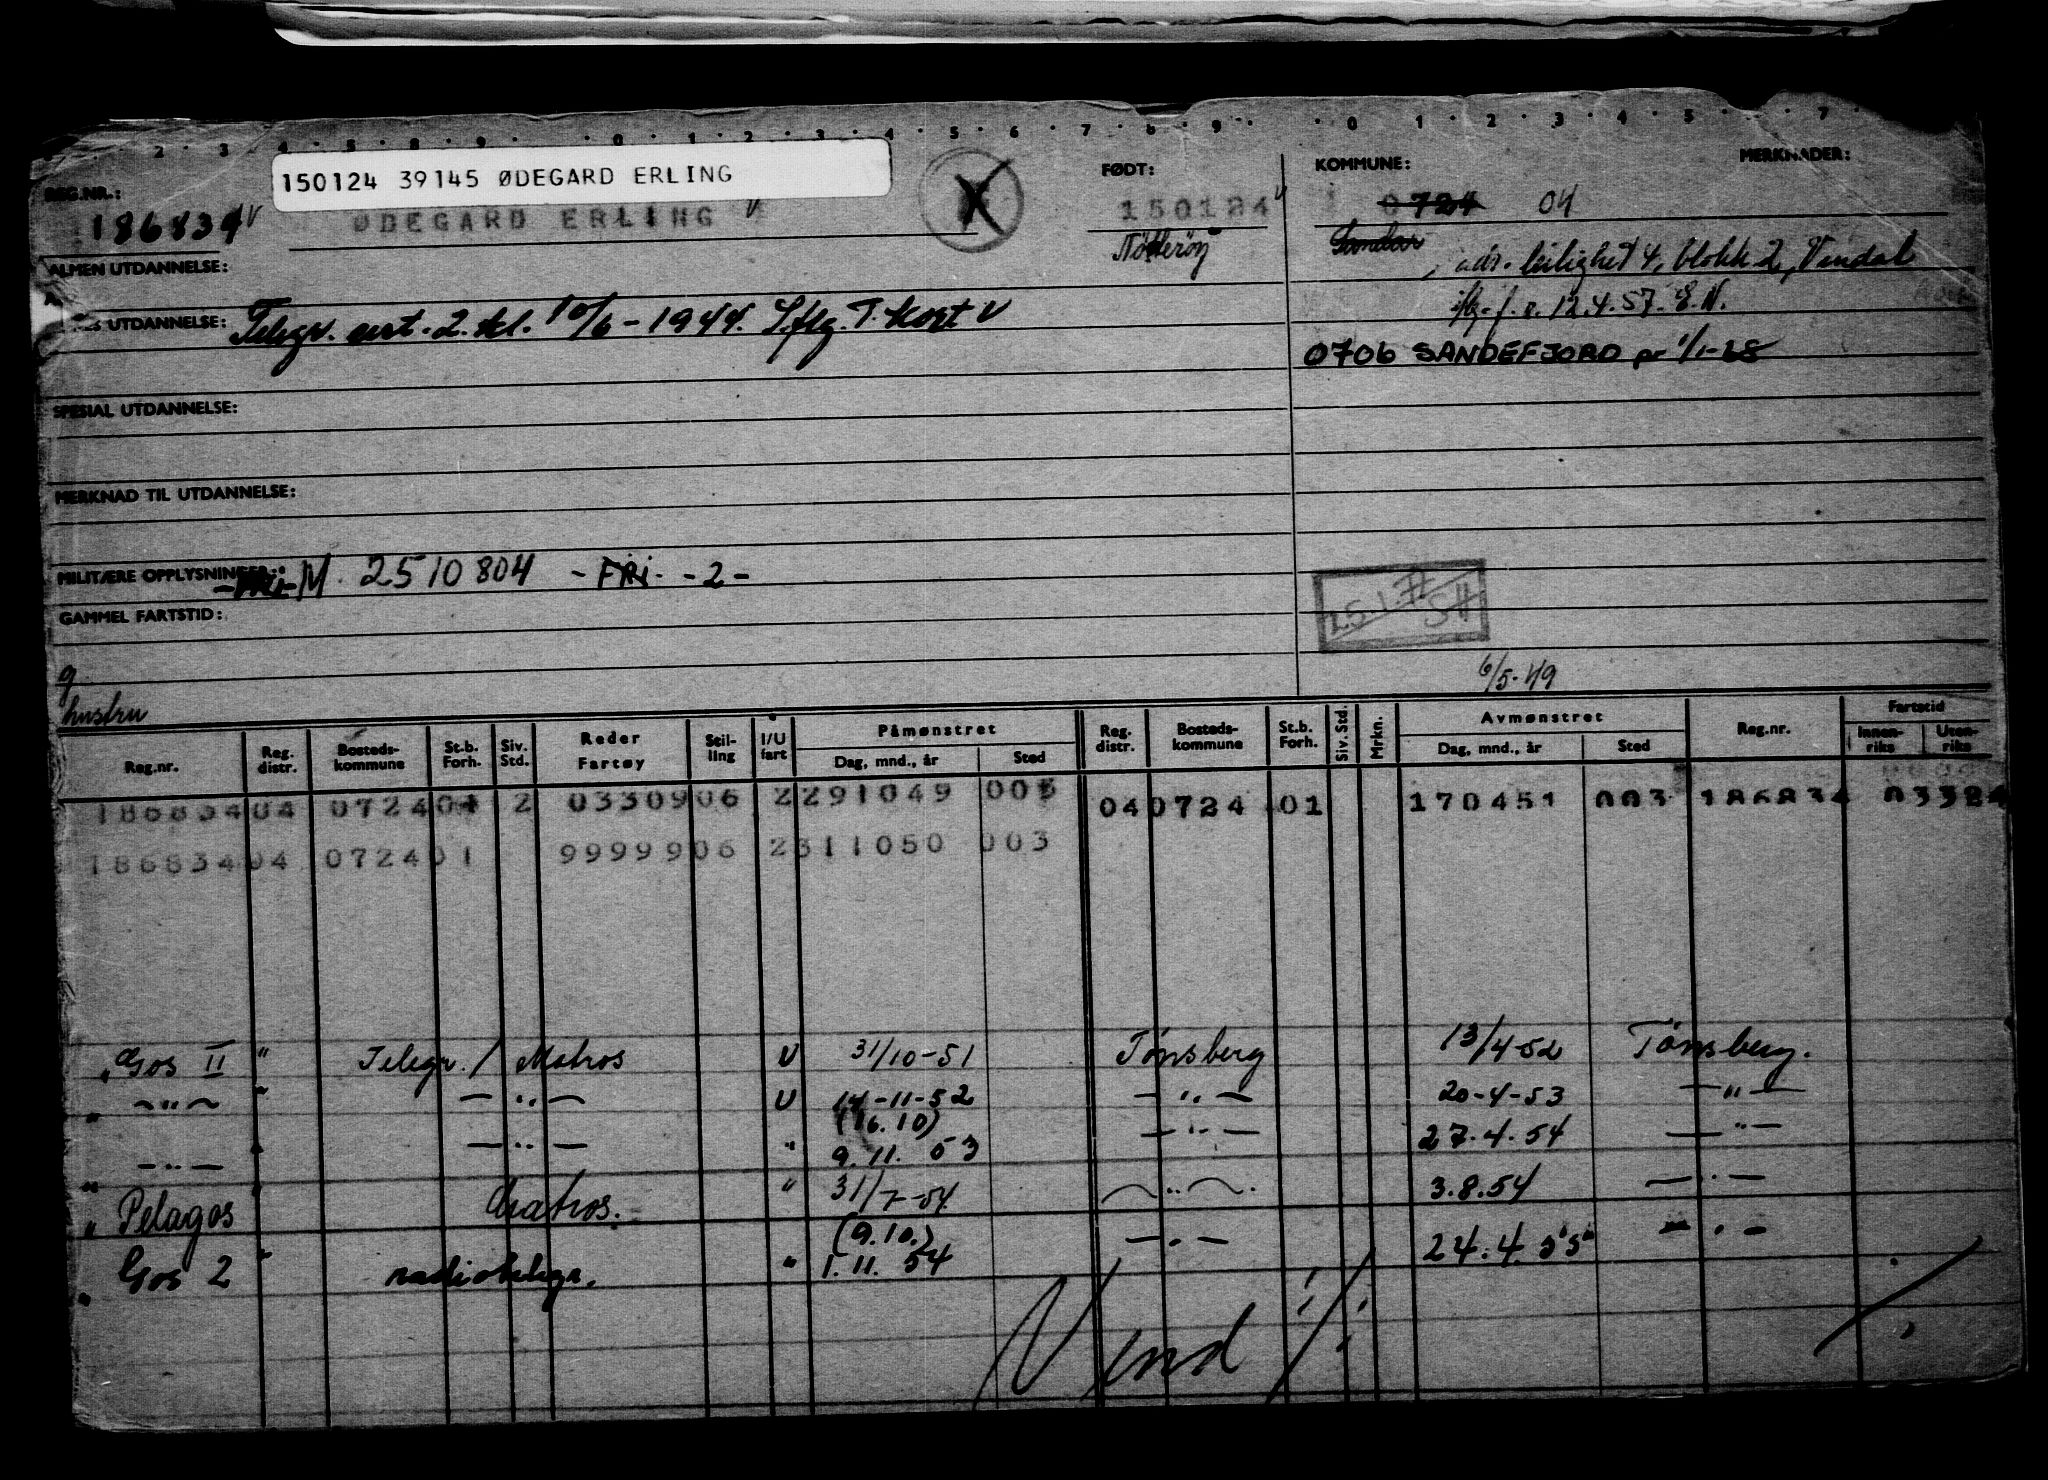 2 · 3 · 4 · 5 · 8 · 9 · 0 · 1 · 2 · 3 · 4 · 5 · 6 · 7 · 8 · 9 · 0 1 · 2 · 3 · 4 · 5 · 7
150124 39145 ØDEGARD ERLING
REG.NR.: FØDT: KOMMUNE: MERKNADER:
186834 V ØDEGARD ERLING V 150124 V 0724 04
Nøtterøy Sandar
ALMEN UTDANNELSE: adr. leilighet 4, blokk 2, Vindal
12.4.57. E.N.
UTDANNELSE: Telegr. sert. 2. kl. 10/6-1944. T. kort V
0706 SANDEFJORD pr 1/1-68
SPESIAL UTDANNELSE:
MERKNAD TIL UTDANNELSE:
MILITÆRE OPPLYSNINGER: M. 2510804 - FRI - - 2 -
GAMMEL FARTSTID:
g
6/5-49
hustru
Reg.nr. Reg. distr. Bosteds-kommune St.b. Forh. Siv. Std. Reder Fartøy Stil-ling I/U fart Påmønstret Dag, mnd., år Sted Reg. distr. Bosteds-kommune St.b. Forh. Siv. Std. Mrkn. Avmønstret Dag, mnd., år Sted Reg.nr. Fartstid Innen-riks Uten-riks
186834 04 0724 01 2 03309 06 2 291049 003 04 0724 01 170451 003 186834 03324
186834 04 0724 01 99999 06 2 311050 003
"Gos II" Telegr. / Matros U 31/10-51 Tønsberg 13/4-52 Tønsberg.
" — " — " — " — U 14-11-52 — " — 20-4-53 — " —
(16.10)
— " — " — " — " 9.11.53 — " — 27.4.54 — " —
"Pelagos" Matros. " 31/7-54 — " — 3.8.54 — " —
(9.10.)
"Gos 2" radiotelegr. " 1.11.54 — " — 24.4.55 — " —
Vend!